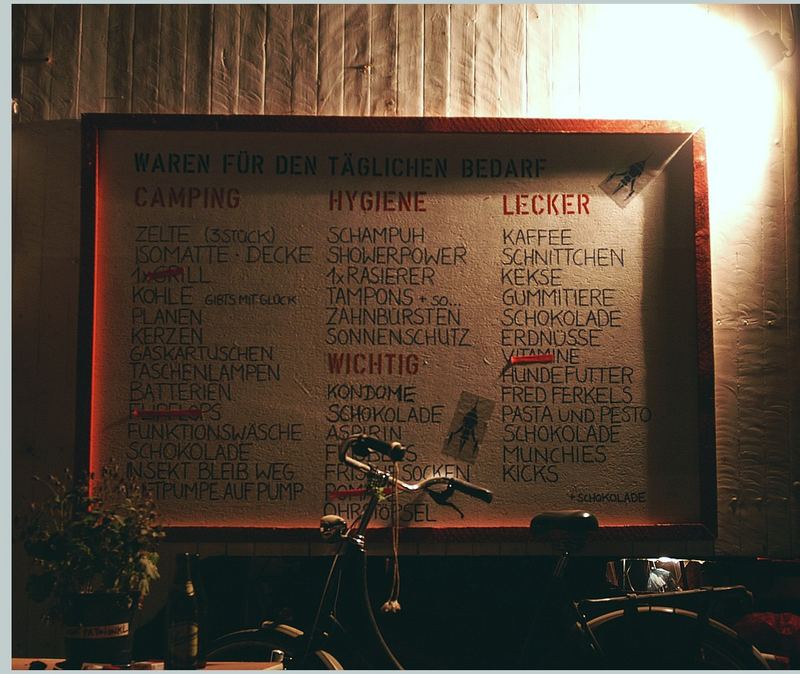 WAREN FÜR DEN TÄGLICHEN BEDARF
CAMPING
ZELTE (3 STÜCK)
ISOMATTE · DECKE
1x GRILL
KOHLE GIBTS MIT GLÜCK
PLANEN
KERZEN
GASKARTUSCHEN
TASCHENLAMPEN
BATTERIEN
FLIPFLOPS
FUNKTIONSWÄSCHE
SCHOKOLADE
INSEKT BLEIB WEG
AUF PUMP
HYGIENE
SCHAMPUH
SHOWERPOWER
1x RASIERER
TAMPONS + SO...
ZAHNBÜRSTEN
SONNENSCHUTZ
WICHTIG
KONDOME
SCHOKOLADE
ASPIRIN
SOCKEN
OHRSTÖPSEL
LECKER
KAFFEE
SCHNITTCHEN
KEKSE
GUMMITIERE
SCHOKOLADE
ERDNÜSSE
VITAMINE
HUNDEFUTTER
FRED FERKELS
PASTA UND PESTO
SCHOKOLADE
MUNCHIES
KICKS
+SCHOKOLADE